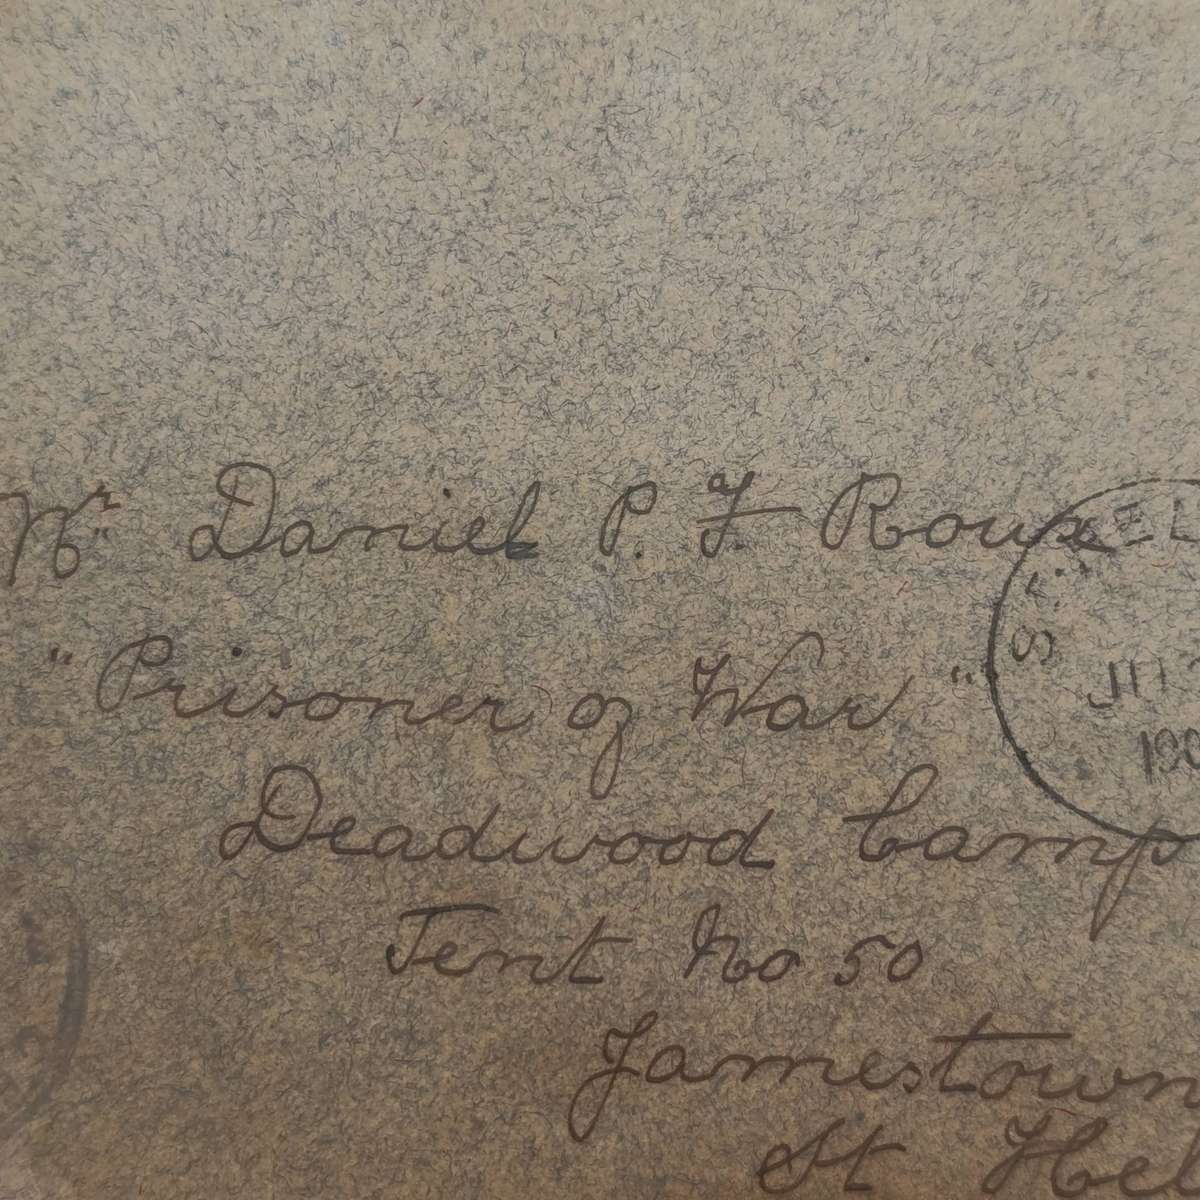 Mr Daniel P. F. Roux
"Prisoner of War"
Deadwood Camp
Tent No 50
Jamestown
St Hel